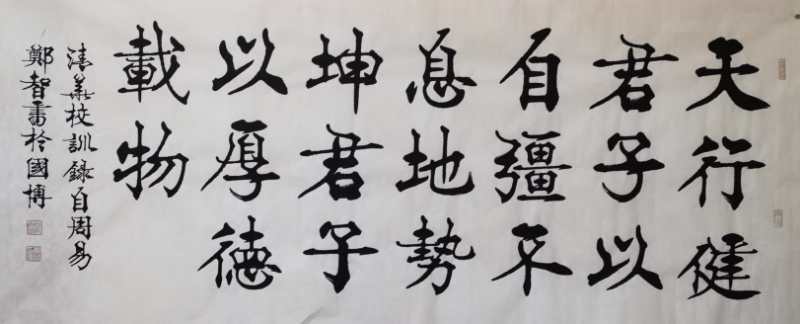 天行健
君子以
自彊不
息地勢
坤君子
以厚德
載物
清華校訓録自周易
鄭智書於國博